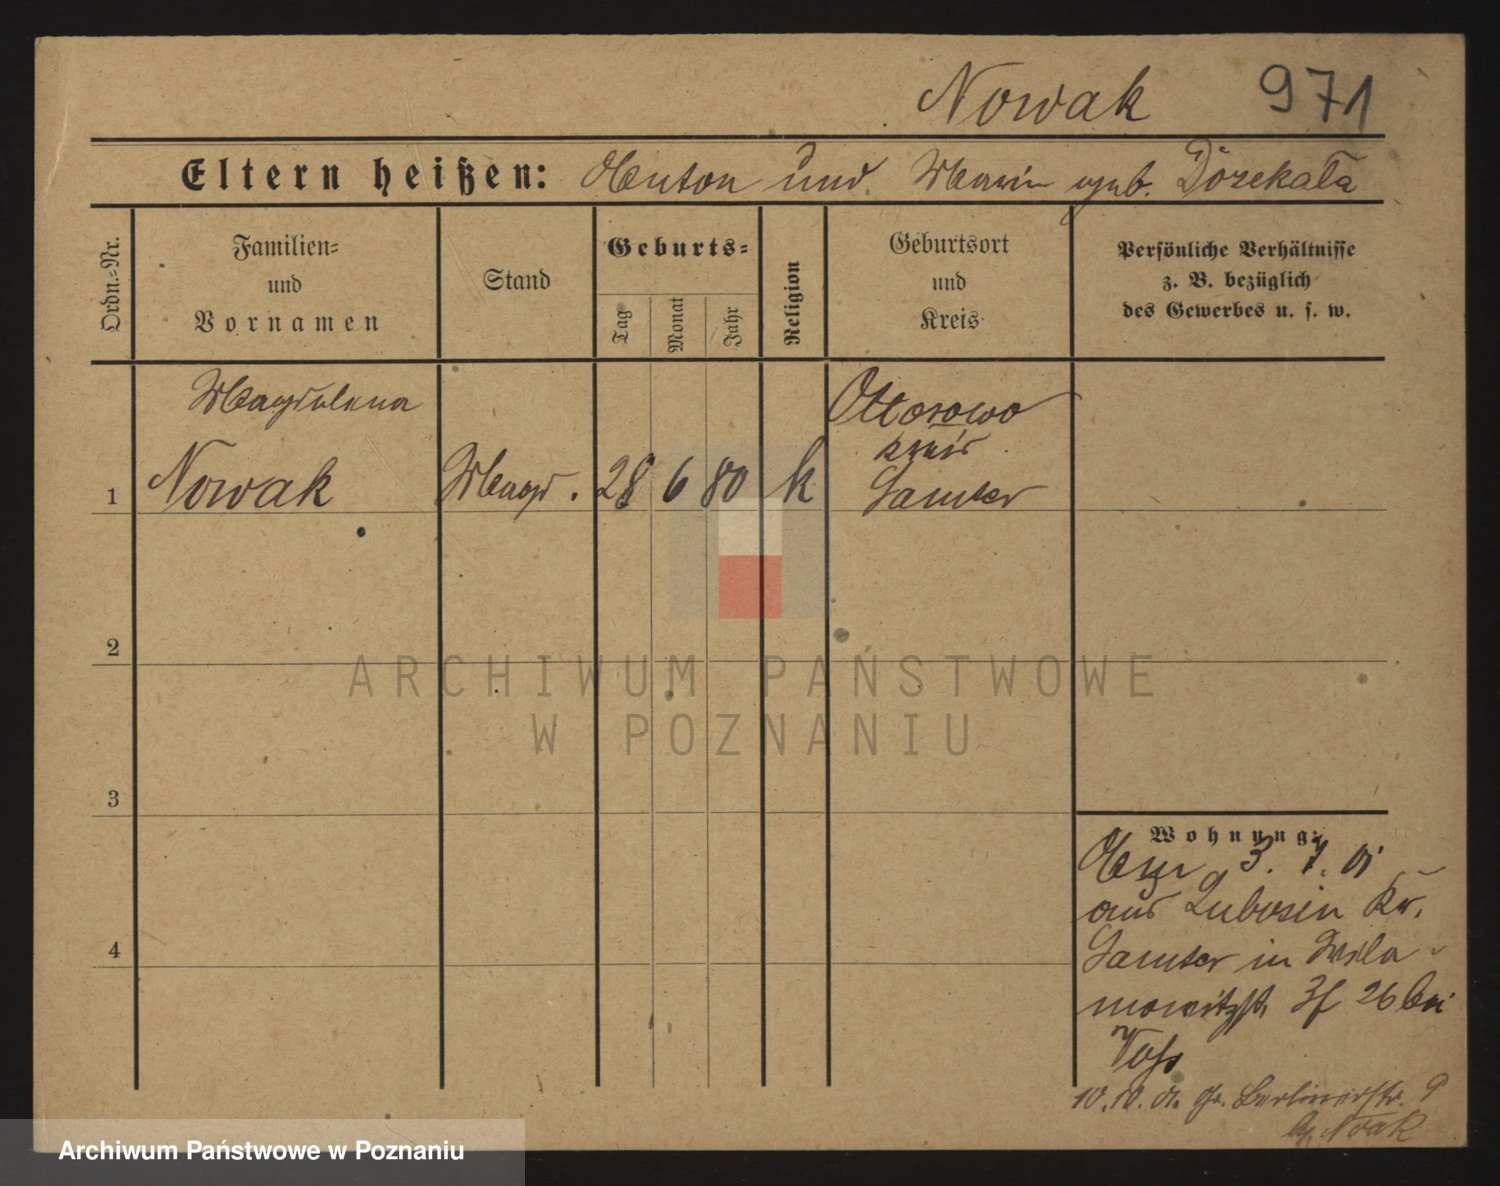 Nowak 971
Eltern heißen: Anton und Marie geb. Dorekała
Ordn.=Nr.
Familien=
und
Vornamen
Stand
Geburts=
Tag
Monat
Jahr
Religion
Geburtsort
und
Kreis
Persönliche Verhältnisse
z. B. bezüglich
des Gewerbes u. s. w.
Magdalena
1 Nowak Magd. 28 6 80 k
Ottorowo
Kreis
Samter
2
3
4
Wohnung:
3. 7. 01
aus Lubosin Kr.
Samter in Wila-
mowitzst. 26 bei
Voß
10. 10. 01. Gr. Berlinerstr. 9
ARCHIWUM PAŃSTWOWE
W POZNANIU
Archiwum Państwowe w Poznaniu